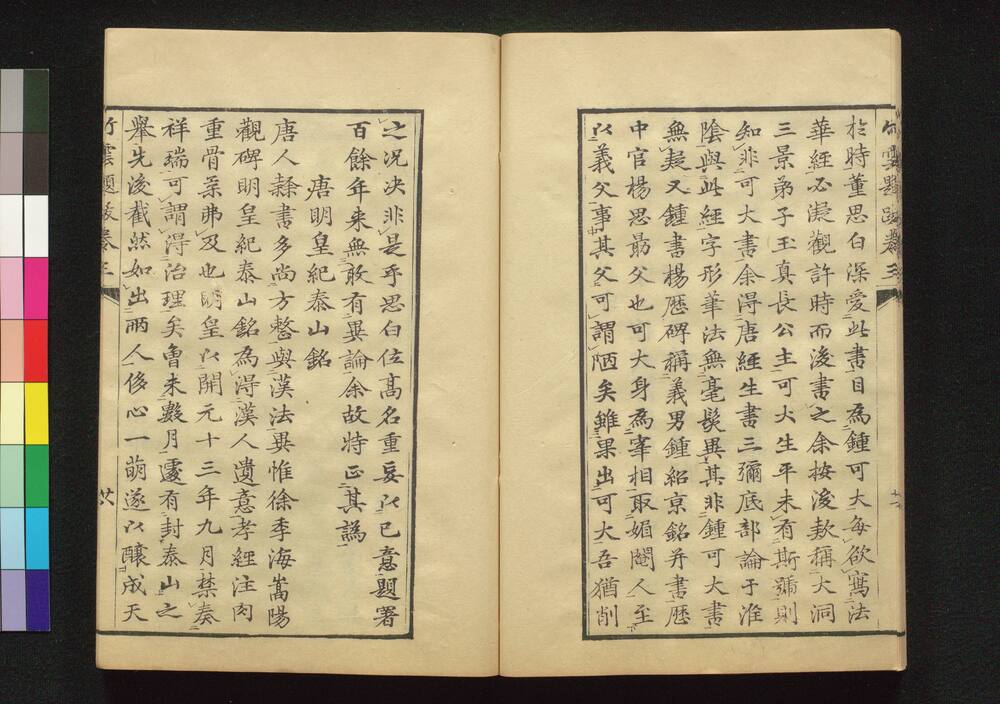 竹雲題跋卷三
於時董思白深愛此書目為鍾可大每欲寫法
華經必凝觀許時而後書之余按後款稱大洞
三景弟子玉真長公主可大生平未有斯號則
知非可大書余得唐經生書三彌底部論于淮
陰與此經字形筆法無毫髮異其非鍾可大書
無疑又鍾書楊歷碑稱義男鍾紹京銘并書歷
中官楊思勗父也可大身為宰相取媚閹人至
以義父事其父可謂陋矣雖果出可大吾猶削
之况决非是乎思白位高名重妄以己意題署
百餘年来無敢有異論余故特正其譌
唐明皇紀泰山銘
唐人隸書多尚方整與漢法異惟徐季海嵩陽
觀碑明皇紀泰山銘為得漢人遺意孝經注肉
重骨柔弗及也明皇以開元十三年九月禁奏
祥瑞可謂得治理矣曾未數月遽有封泰山之
舉先後截然如出兩人侈心一萌遂以釀成天
竹雲題跋卷三
廿